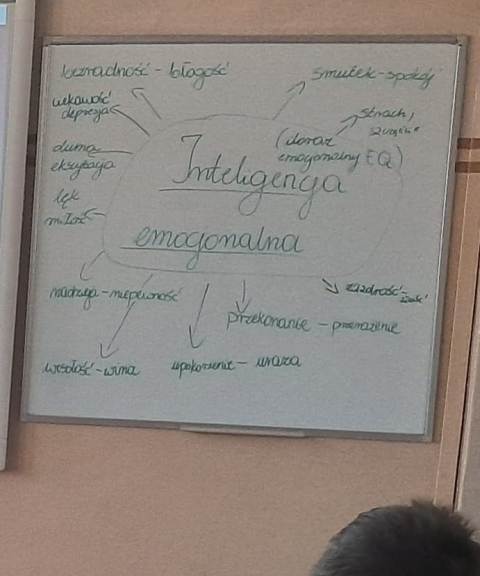 bezradność - błagość
smutek - spokój
ciekawość
depresja
strach,
duma
ekscytacja
(doraź
emogonalny EQ)
Inteligenga
lęk
miłość
emogonalna
nadzieja - niepewność
zazdrość -
złość
przekonanie - przerażenie
wesołość - wina
upokorzenie - uraza